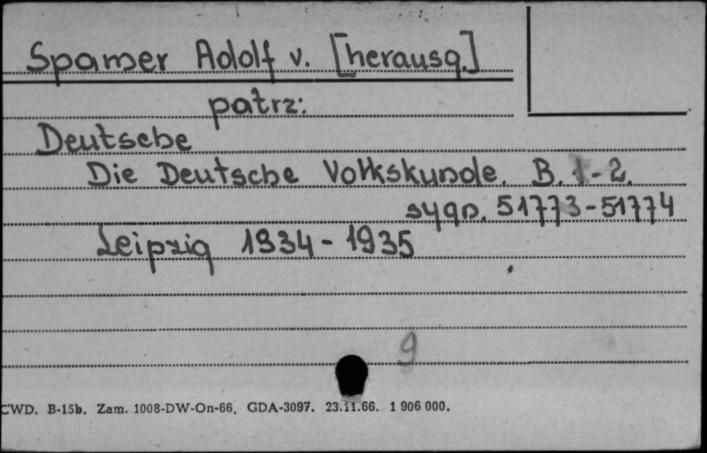 Spamer Adolf v. [herausg.]
patrz:
Deutsche
Die Deutsche Volkskunde. B. 1-2.
sygn. 51773-51774
Leipzig 1934-1935
9
CWD. B-15b. Zam. 1008-DW-On-66. GDA-3097. 23.11.66. 1 906 000.